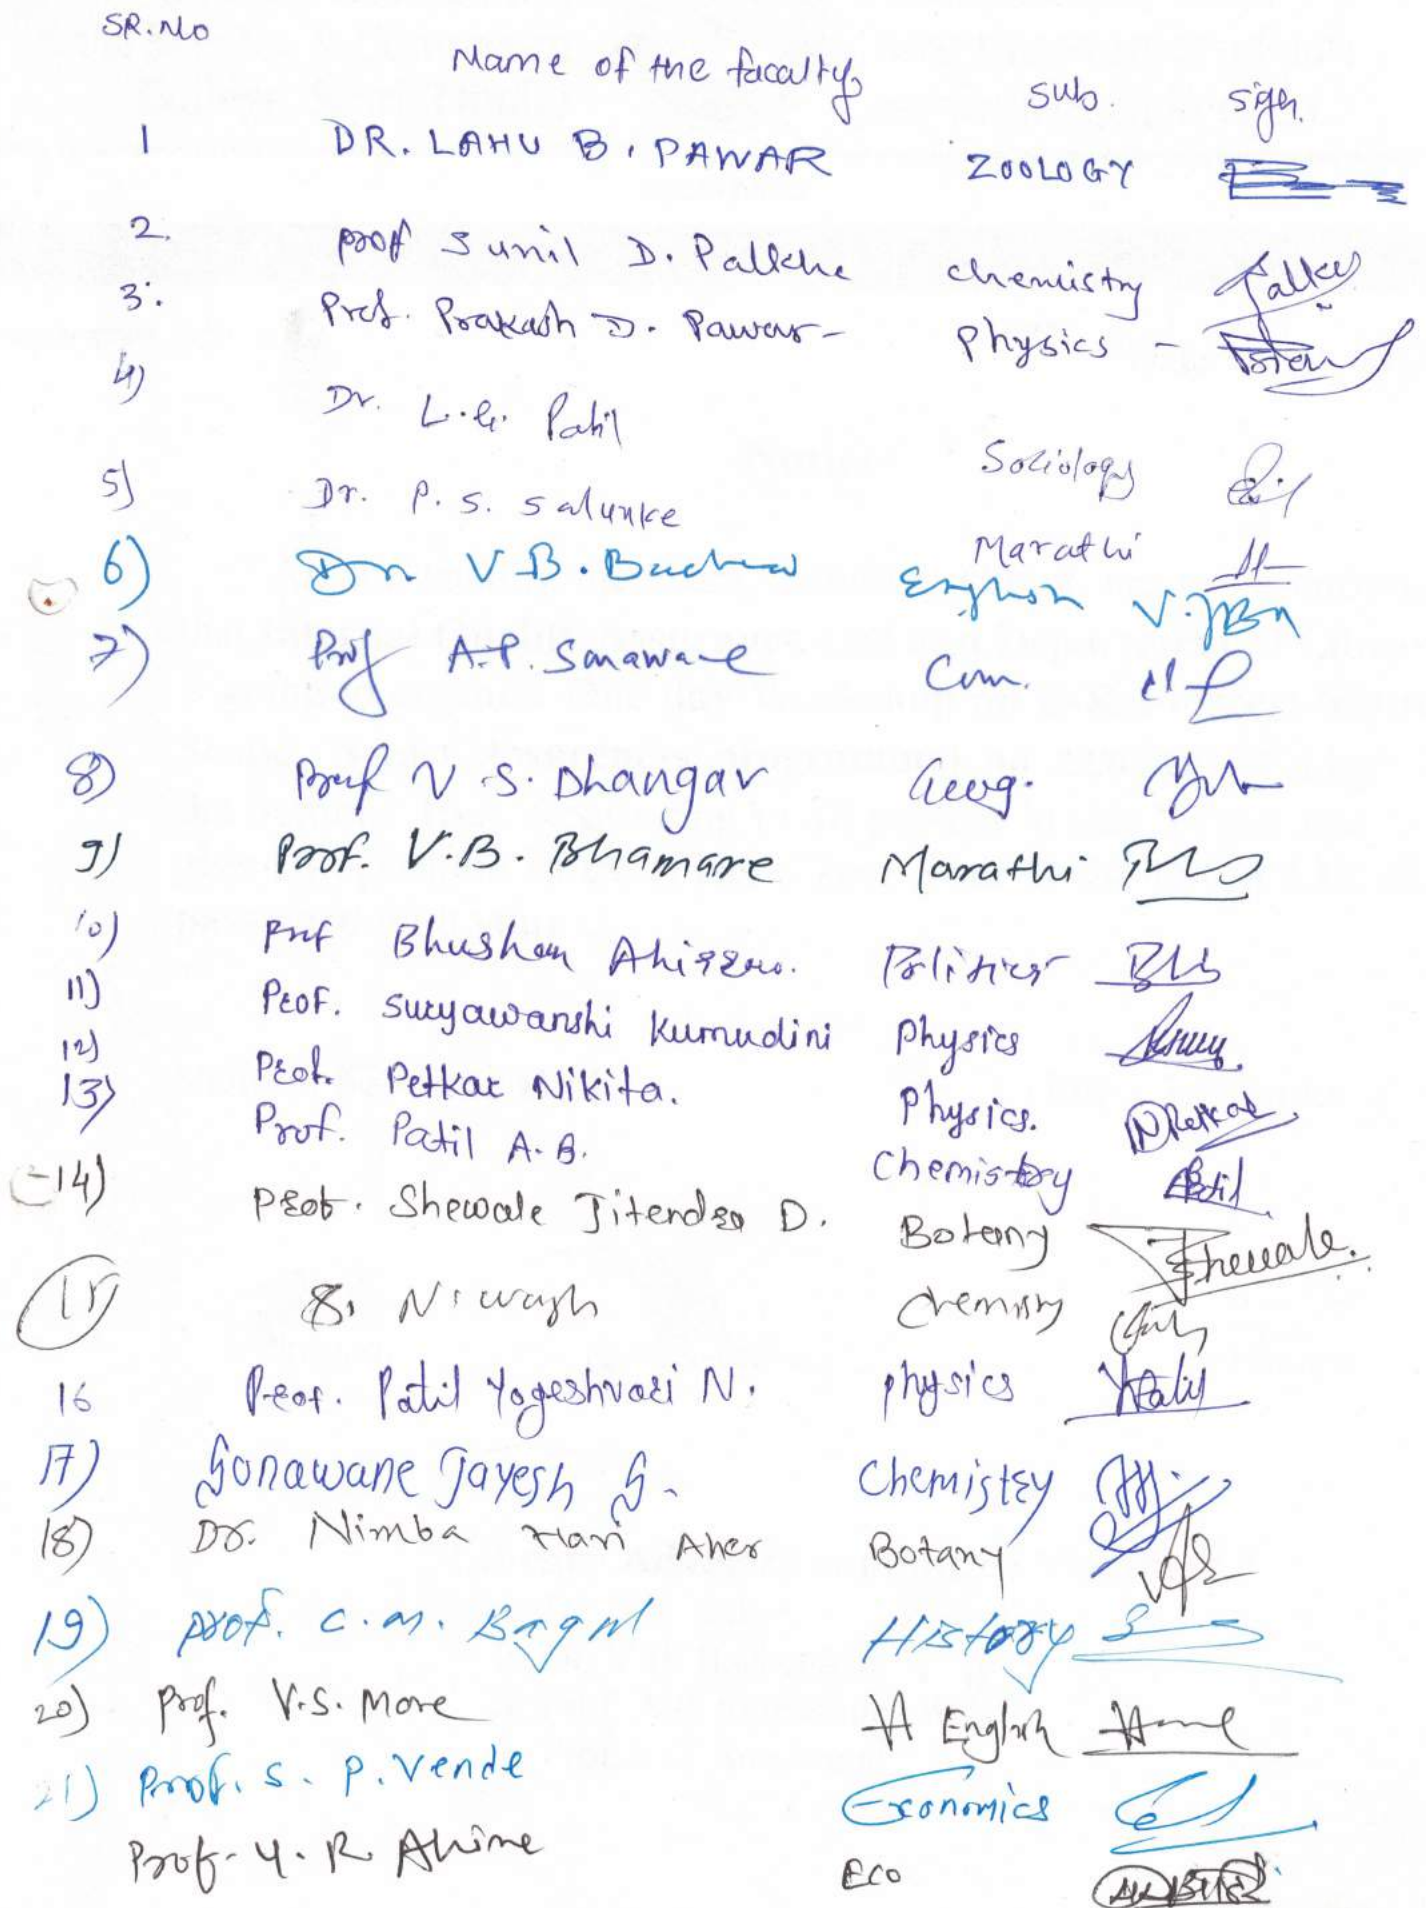 SR.No
Name of the facalty sub. sign.
1 DR. LAHU B. PAWAR ZOOLOGY
2. prof Sunil D. Palkhe chemistry
3. Prof. Prakash D. Pawar- Physics -
4) Dr. L.G. Patil Sociology
5) Dr. P. S. Salunke Marathi
6) Dr V.B. English
7) Prof A.P. Sonawane Com.
8) Prof V.S. Dhangar Geog.
9) Prof. V.B. Bhamare Marathi
10) Prof Bhushan Ahirrao. Politics
11) Prof. Suryawanshi Kumudini Physics
12) Prof. Petkar Nikita. Physics. Petkar
13) Prof. Patil A.B. Chemistry
14) Prof. Shewale Jitendra D. Botany Shewale.
15 S. N. wagh chemistry
16 Prof. Patil Yogeshvari N. physics
17) Sonawane Jayesh S. Chemistry
18) Dr. Nimba Hari Aher Botany
19) prof. C.M. Bagul History
20) Prof. V.S. More English
21) Prof. S. P. Vende Economics
Prof. Y. R. Ahire Eco